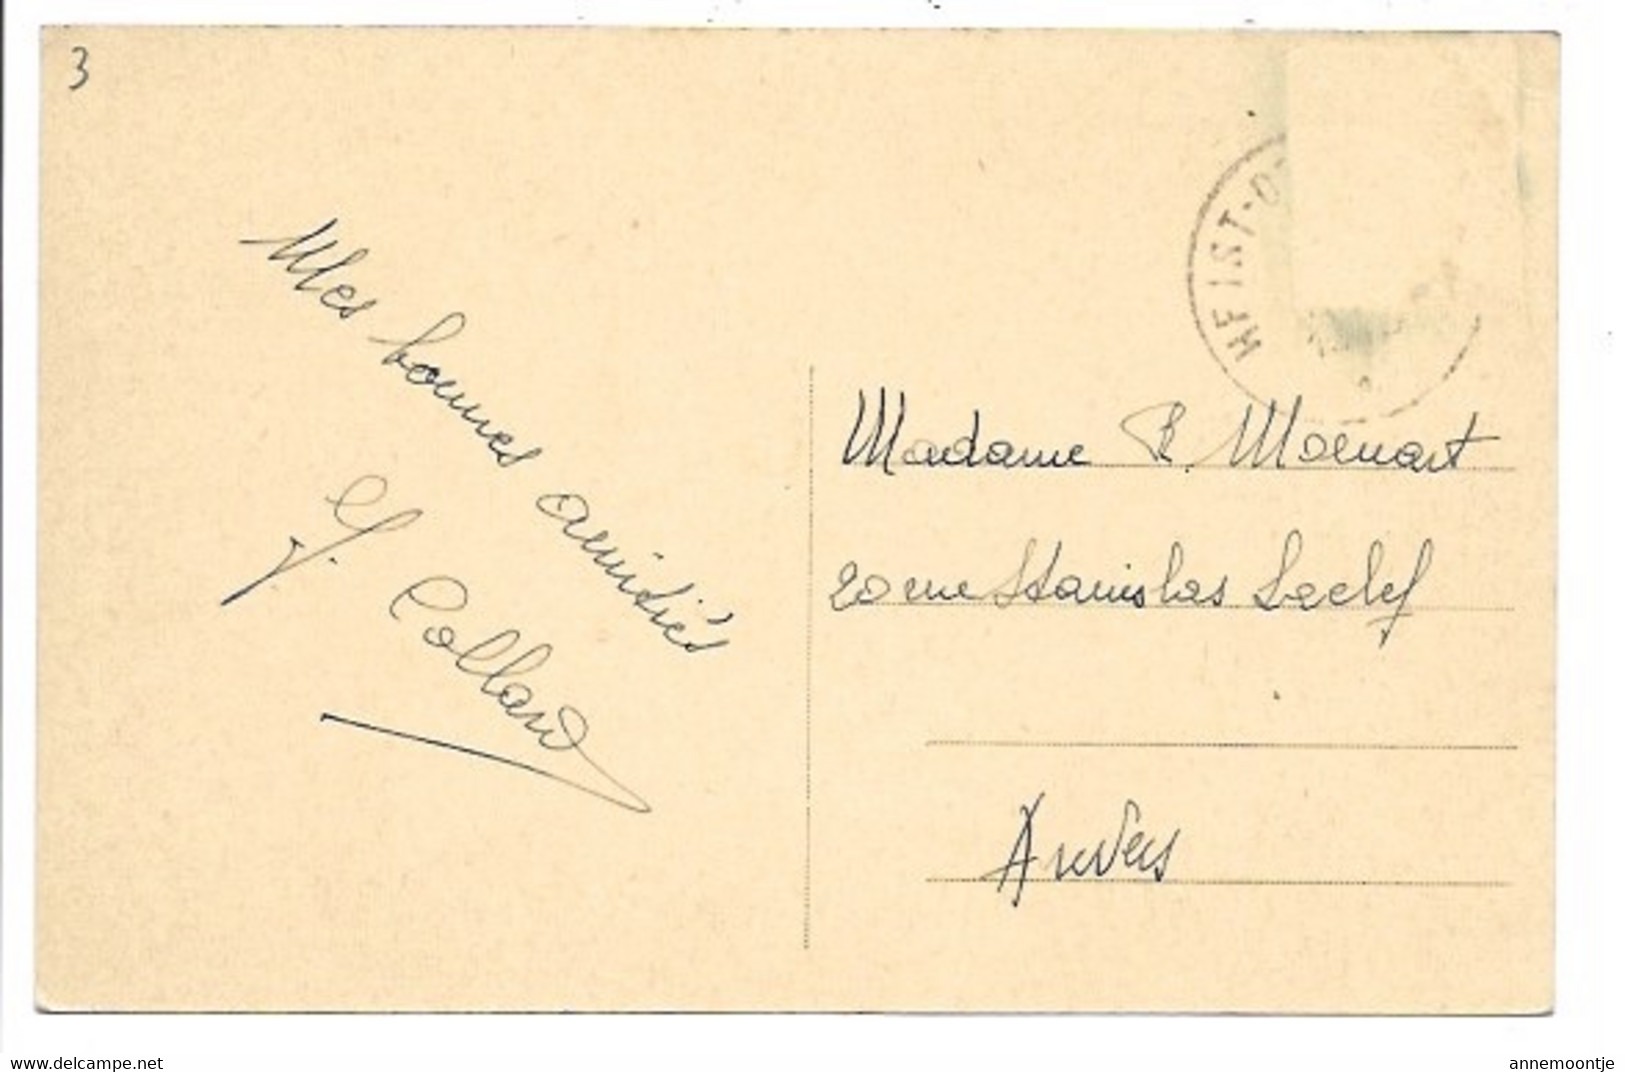 3
HEIST-O
Mes bonnes amitiés
Y. Collard
Madame R. Moenart
20 rue Stanislas Leclef
Anvers
delcampe.net
annemoontje